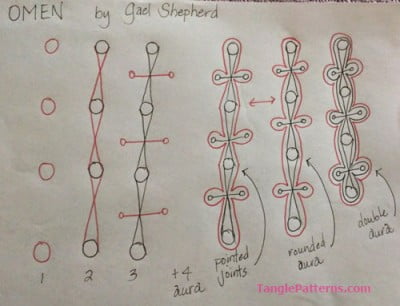 OMEN by Gael Shepherd
1 2 3 +4
aura
pointed
joints
rounded
aura
double
aura
TanglePatterns.com